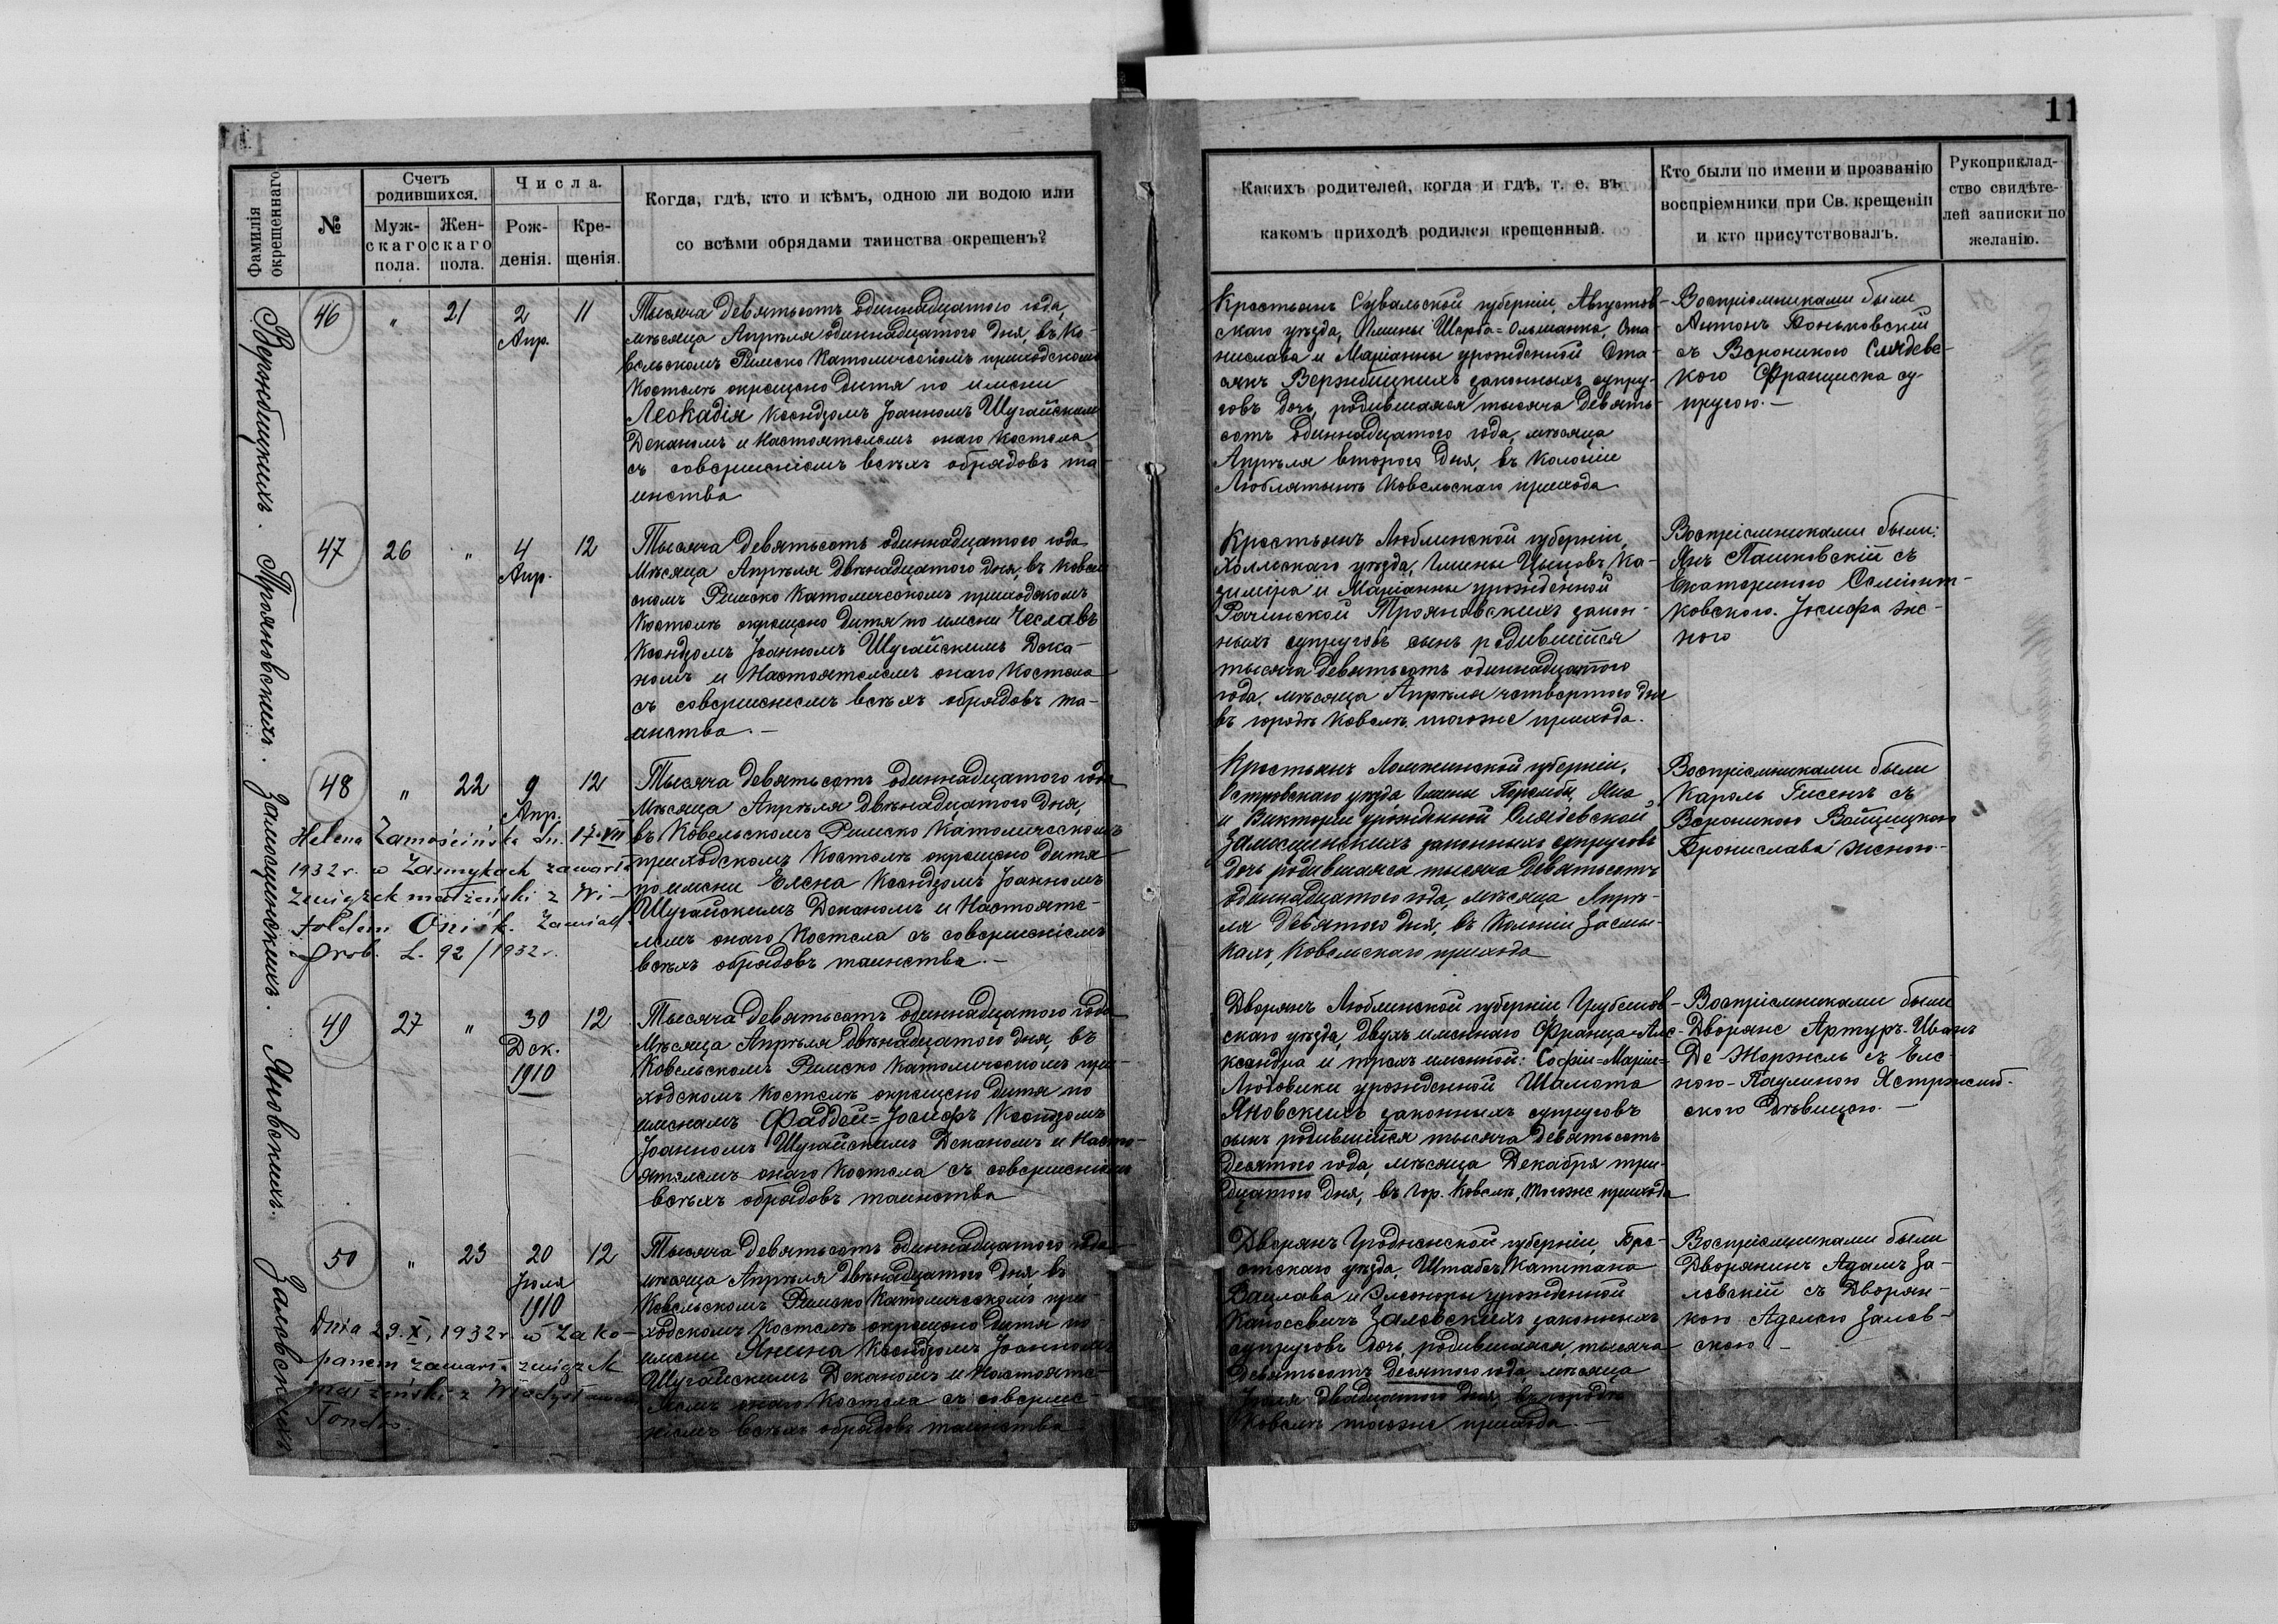 11
Фамилія
окрещеннаго
№
Счетъ
родившихся.
Муж-
скаго
пола.
Жен-
скаго
пола.
Числа.
Рож-
денія.
Кре-
щенія.
Когда, гдѣ, кто и кѣмъ, одною ли водою или
со всѣми обрядами таинства окрещенъ?
Какихъ родителей, когда и гдѣ, т. е. въ
какомъ приходѣ родился крещенный.
Кто были по имени и прозванію
воспріемники при Св. крещеніи
и кто присутствовалъ.
Рукоприклад-
ство свидѣте-
лей записки по
желанію.
Вержбицкихъ.
46 " 21 2 11
Апр.
Тысяча девятьсотъ одиннадцатого года,
мѣсяца Апрѣля одиннадцатого дня, въ Ко-
вельскомъ Римско Католическомъ приходскомъ
Костелѣ окрещено дитя по имени
Леокадія Ксендзомъ Іоанномъ Шугайскимъ
Деканомъ и Настоятелемъ онаго Костела
съ совершеніемъ всѣхъ обрядовъ та-
инства
Крестьянъ Сувальской губерніи, Августов-
скаго уѣзда, Гмины Щерба-Ольшанка, Ста-
нислава и Маріанны урожденной
Вержбицкихъ законныхъ супру-
говъ дочь, родившаяся тысяча девять-
сотъ одиннадцатого года, мѣсяца
Апрѣля второго дня, въ Колоніи
Люблятынъ Ковельскаго прихода
Воспріемниками были
Антонъ Боньковскій
съ Вероникою
Франциска су-
пругою.—
Трояновскихъ.
47 26 " 4 12
Апр.
Тысяча девятьсотъ одиннадцатого года
Мѣсяца Апрѣля двѣнадцатого дня, въ Ковель-
скомъ Римско Католическомъ приходскомъ
Костелѣ окрещено дитя по имени Чеславъ
Ксендзомъ Іоанномъ Шугайскимъ Дека-
номъ и Настоятелемъ онаго Костела
съ совершеніемъ всѣхъ обрядовъ та-
инства.—
Крестьянъ Люблинской губерніи,
Холмскаго уѣзда, Гмины Цыцовъ Ка-
зиміра и Маріанны урожденной
Рачинской Трояновскихъ закон-
ныхъ супруговъ сынъ родившійся
тысяча девятьсотъ одиннадцатого
года, мѣсяца Апрѣля четвертого дня
въ городѣ Ковелѣ, тогоже прихода.
Воспріемниками были:
Янъ Пашковскій съ
Екатериною
Іосифа же-
ною
Замосцинскихъ.
48 " 22 9 12
Апр.
Helena Zamościńska dn. 17.VII
1932 r. w Zasmykach zawarła
związek małżeński z Wi-
toldem Onisk. Zawiad.
prob. L. 92/1932 r.
Тысяча девятьсотъ одиннадцатого года
Мѣсяца Апрѣля двѣнадцатого дня,
въ Ковельскомъ Римско Католическомъ
приходскомъ Костелѣ окрещено дитя
по имени Елена Ксендзомъ Іоанномъ
Шугайскимъ Деканомъ и Настояте-
лемъ онаго Костела съ совершеніемъ
всѣхъ обрядовъ таинства.—
Крестьянъ Ломжинской губерніи,
Островскаго уѣзда Гмины Яна
и Викторіи урожденной
Замосцинскихъ законныхъ супруговъ
дочь родившаяся тысяча девятьсотъ
одиннадцатого года, мѣсяца Апрѣ-
ля девятого дня, въ Колоніи Засмы-
кахъ, Ковельскаго прихода
Воспріемниками были
Кароль Гисенъ съ
Вероникою Войцицкого
Бронислава женою.
Яновскихъ.
49 27 " 30 12
Дек.
1910
Тысяча девятьсотъ одиннадцатого года
Мѣсяца Апрѣля двѣнадцатого дня, въ
Ковельскомъ Римско Католическомъ при-
ходскомъ Костелѣ окрещено дитя по
именамъ Фаддей-Іосифъ Ксендзомъ
Іоанномъ Шугайскимъ Деканомъ и Насто-
ятелемъ онаго Костела съ совершеніемъ
всѣхъ обрядовъ таинства
Дворянъ Люблинской губерніи Грубешов-
скаго уѣзда, двухъименнаго Франца-Але-
ксандра и трехъименной: Софіи-Маріи-
Людовики урожденной Шамота
Яновскихъ законныхъ супруговъ
сынъ родившійся тысяча девятьсотъ
десятого года, мѣсяца Декабря три-
дцатого дня, въ гор. Ковелѣ, тогоже прихода
Воспріемниками были
Дворяне Артуръ-Иванъ
Де Жоржель съ Еле-
ною-Паулиною Ястржемб-
скою Дѣвицею.—
Залевскихъ
50 " 23 20 12
Іюля
1910
Dnia 29.X.1932 r. w Zako-
panem zawarła związek
małżeński z Władysławem
Тысяча девятьсотъ одиннадцатого года
мѣсяца Апрѣля двѣнадцатого дня въ
Ковельскомъ Римско Католическомъ при-
ходскомъ Костелѣ окрещено дитя по
имени Янина Ксендзомъ Іоанномъ
Шугайскимъ Деканомъ и Настояте-
лемъ онаго Костела съ соверше-
ніемъ всѣхъ обрядовъ таинства
Дворянъ Гродненской губерніи, Бре-
стскаго уѣзда, Штабсъ Капитана
Вацлава и Элеоноры урожденной
Залевскихъ законныхъ
супруговъ дочь, родившаяся тысяча
девятьсотъ десятого года, мѣсяца
Іюля двадцатого дня, въ городѣ
Ковелѣ тогоже прихода.—
Воспріемниками были
Дворянинъ Адамъ За-
левскій съ Дворян-
кою Аделею Залев-
скою—